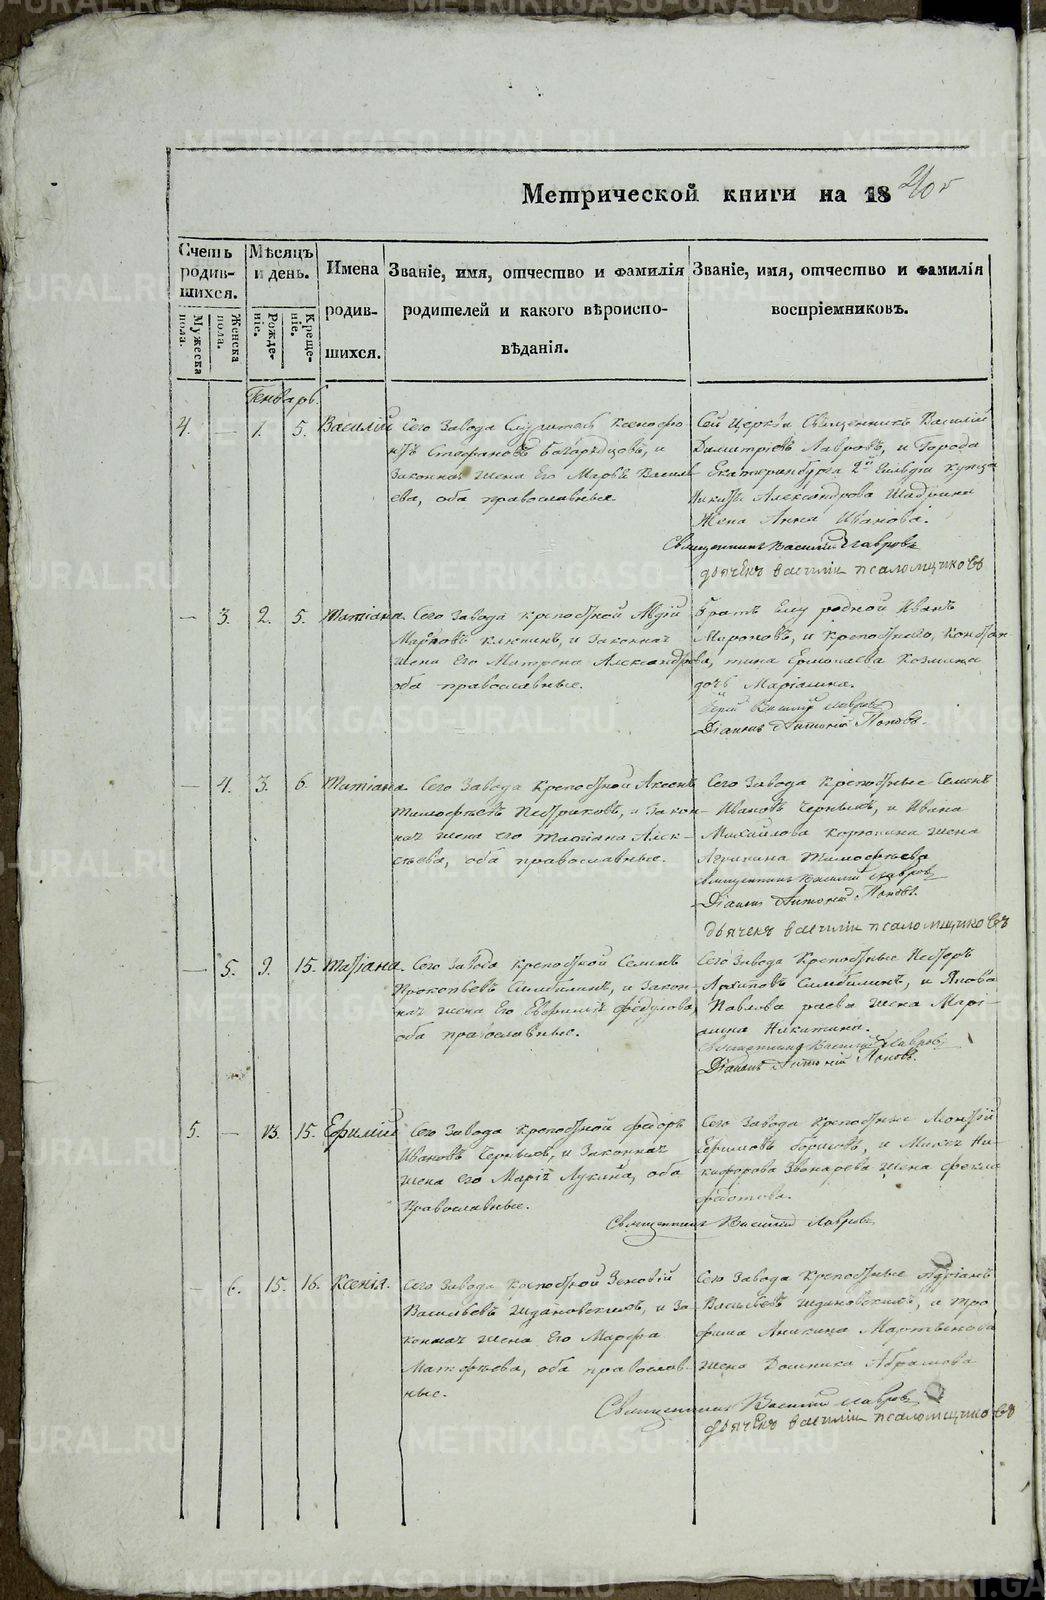 Метрической книги на 18 40й
Счетъ родившихся.
Мужеска пола.
Женска пола.
Мѣсяцъ и день.
Рожденіе.
Крещеніе.
Имена родившихся.
Званіе, имя, отчество и фамилія
родителей и какого вѣроиспо-
вѣданія.
Званіе, имя, отчество и фамилія
воспріемниковъ.
Генварь.
4. — 1. 5. Василій
Сего Завода Ксенофо
нтъ Стефановъ, и
Законная жена Его Марѳа Василь
ева, оба православные
Сей Церкви Священникъ Василій
Димитріевъ Лавровъ, и Города
Екатеринбурга 2й Гильдіи купца
Никиты Александрова
Жена Анна Иванова.
Священникъ Василій Лавровъ
дьячекъ василій псаломщиковъ
— 3. 2. 5. Татіана
Сего Завода крепостной Авдій
Марковъ, и Законная
жена Его Матрена Александрова,
оба православные.
Братъ Ему родной Иванъ
и крепостнаго, Констан
тина Ермолаева Козмина
дочь Маріамна.
Іерей Василій Лавровъ
Діаконъ Антоній Поповъ.
— 4. 3. 6. Татіана
Сего Завода Крепостной Аксенъ
Тимофѣевъ, и Закон-
ная жена его Татіана Алек-
сѣева, оба православные.
Сего Завода Крепостные Семенъ
Ивановъ Черныхъ, и Ивана
Михайлова Корюкина жена
Агрипина Тимофѣева
Священникъ Василій Лавровъ
Діаконъ Антоній Поповъ.
дьячекъ василій псаломщиковъ
— 5. 9. 15. Татіана.
Сего Завода крепостной Семенъ
Прокопьевъ Симбилинъ, и Закон-
ная жена Его Евфимія Федулова,
оба православные.
Сего Завода Крепостные Петръ
Архиповъ Симбилинъ, и Якова
Павлова жена Марі-
амна Никитина.
Священникъ Василій Лавровъ
Діаконъ Антоній Поповъ.
5. — 13. 15. Ефимій
Сего Завода крепостной Федоръ
Ивановъ Черныхъ, и Законная
жена Его Марія Лукина, оба
Православные.
Сего Завода Крепостные
Ефимовъ, и Ни-
кифорова Звонарева жена Фекла
Федотова.
Священникъ Василій Лавровъ
— 6. 15. 16. Ксенія.
Сего Завода Крепостной Зеновій
Васильевъ Ждановскихъ, и За
конная жена Его Марфа
Матфѣева, оба православ-
ные.
Сего Завода Крепостные Адріанъ
Васильевъ Ждановскихъ, и Тро
фима Аникина Мартынова
жена Домника Абрамова
Священникъ Василій Лавровъ
дьячекъ василій псаломщиковъ
METRIKI.GASO-URAL.RU